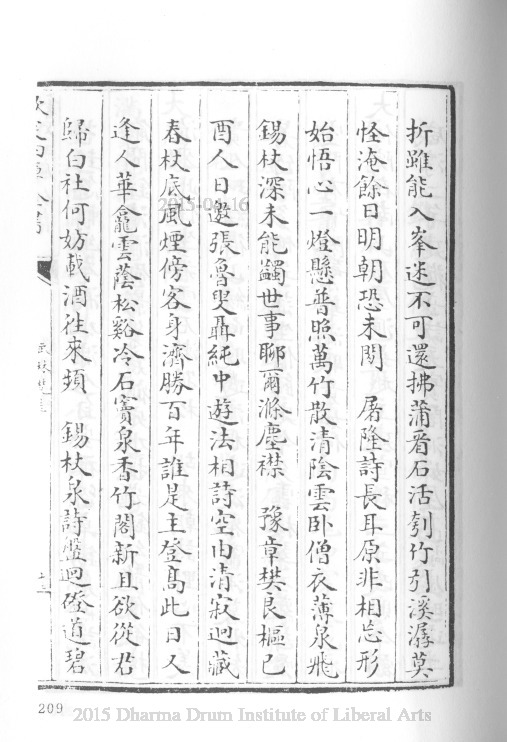 折雖能入峯迷不可還拂蒲看石活刳竹引溪潺莫
怪淹餘日明朝恐未閒　屠隆詩長耳原非相忘形
始悟心一燈懸普照萬竹散清陰雲臥僧衣薄泉飛
錫杖深未能蠲世事聊爾滌塵襟　豫章樊良樞已
酉人日邀張魯叟聶純中遊法相詩空由清寂迴藏
春杖底風煙傍客身濟勝百年誰是主登高此日人
逢人華龕雲蔭松谿冷石竇泉香竹閣新且欲從君
歸白社何妨載酒往來頻　錫杖泉詩盤迴磴道碧
209
2015-04-16
2015 Dharma Drum Institute of Liberal Arts